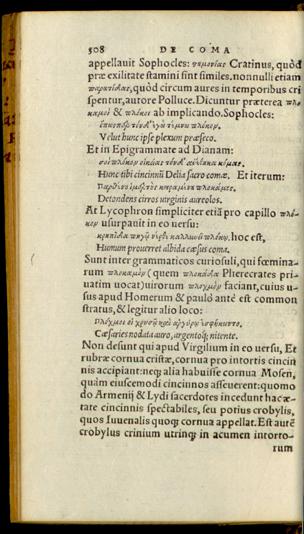 508 DE COMA
appellauit Sophocles: Cratinus, quòd
præ exilitate stamini sint similes. nonnulli etiam
quòd circum aures in temporibus cri
spentur, autore Polluce. Dicuntur præterea πλο
καμοὶ & ab implicando. Sophocles:
Velut hunc ipse plexum præseco.
Et in Epigrammate ad Dianam:
Hunc tibi cincinnū Delia sacro comæ. Et iterum:
Detondens cirros virginis aureolos.
At Lycophron simpliciter etiā pro capillo πλό-
κον usurpauit in eo versu:
hoc est,
Humum proruerret albida cæsus come.
Sunt inter grammaticos curiosuli, qui fœmina-
rum πλοκαμὸν (quem Pherecrates pri-
uatim uocat) uirorum faciant, cuius u-
sus apud Homerum & paulò antè est common
stratus, & legitur alio loco:
Cæsaries nodata auro, argentoq; nitente.
Non desunt qui apud Virgilium in eo uersu, Et
rubræ cornua cristæ, cornua pro intortis cincin
nis accipiant: neq; alia habuisse cornua Mosen,
quàm eiuscemodi cincinnos asseuerent: quomo
do Armenij & Lydi sacerdotes incedunt hac æ-
tate cincinnis spectabiles, seu potius crobylis,
quos Iuuenalis quoq; cornua appellat. Est autē
crobylus crinium utrinq; in acumen intorto-
rum